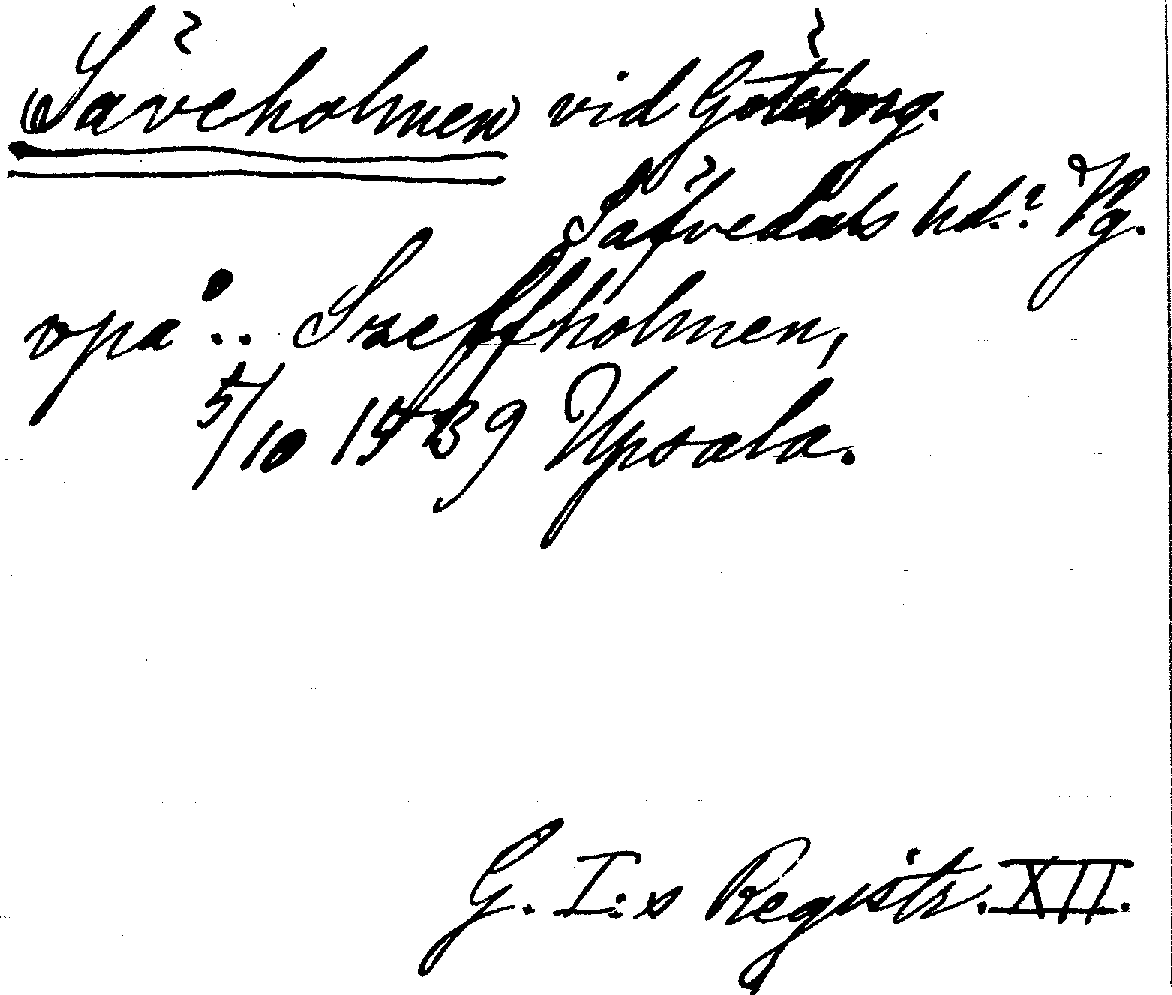 (Säveholmen) vid Göteborg.
Säfvedals hd.? Vg.
vpå .. Szeffholmen,
5/10 1539 Upsala.
G. I:s Registr. XII.